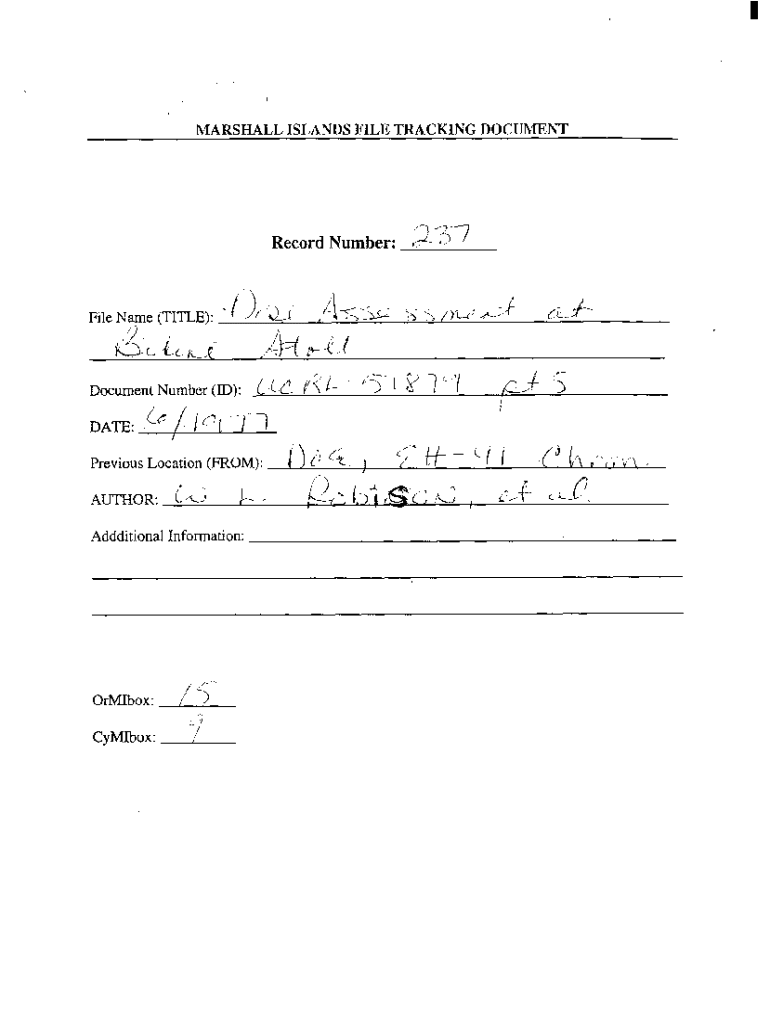 MARSHALL ISLANDS FILE TRACKING DOCUMENT
Record Number: 237
File Name (TITLE): Dose Assessment at
Bikini Atoll
Document Number (ID): UCRL-51879 pt 5
DATE: 6/1977
Previous Location (FROM): DOE, EH-41 Chron.
AUTHOR: W L. Robison, et al.
Addditional Information:
OrMIbox: 15
CyMIbox: 9